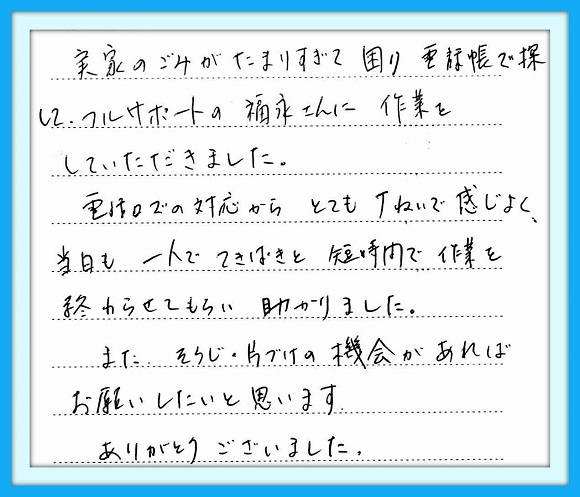 実家のごみがたまりすぎて 困り 電話帳で探
して、フルサポートの 福永さんに 作業を
していただきました。
電話口での対応から とても丁ねいで 感じよく、
当日も 一人で てきぱきと 短時間で 作業を
終わらせてもらい 助かりました。
また、そうじ・片づけの機会があれば
お願いしたいと思います。
ありがとうございました。